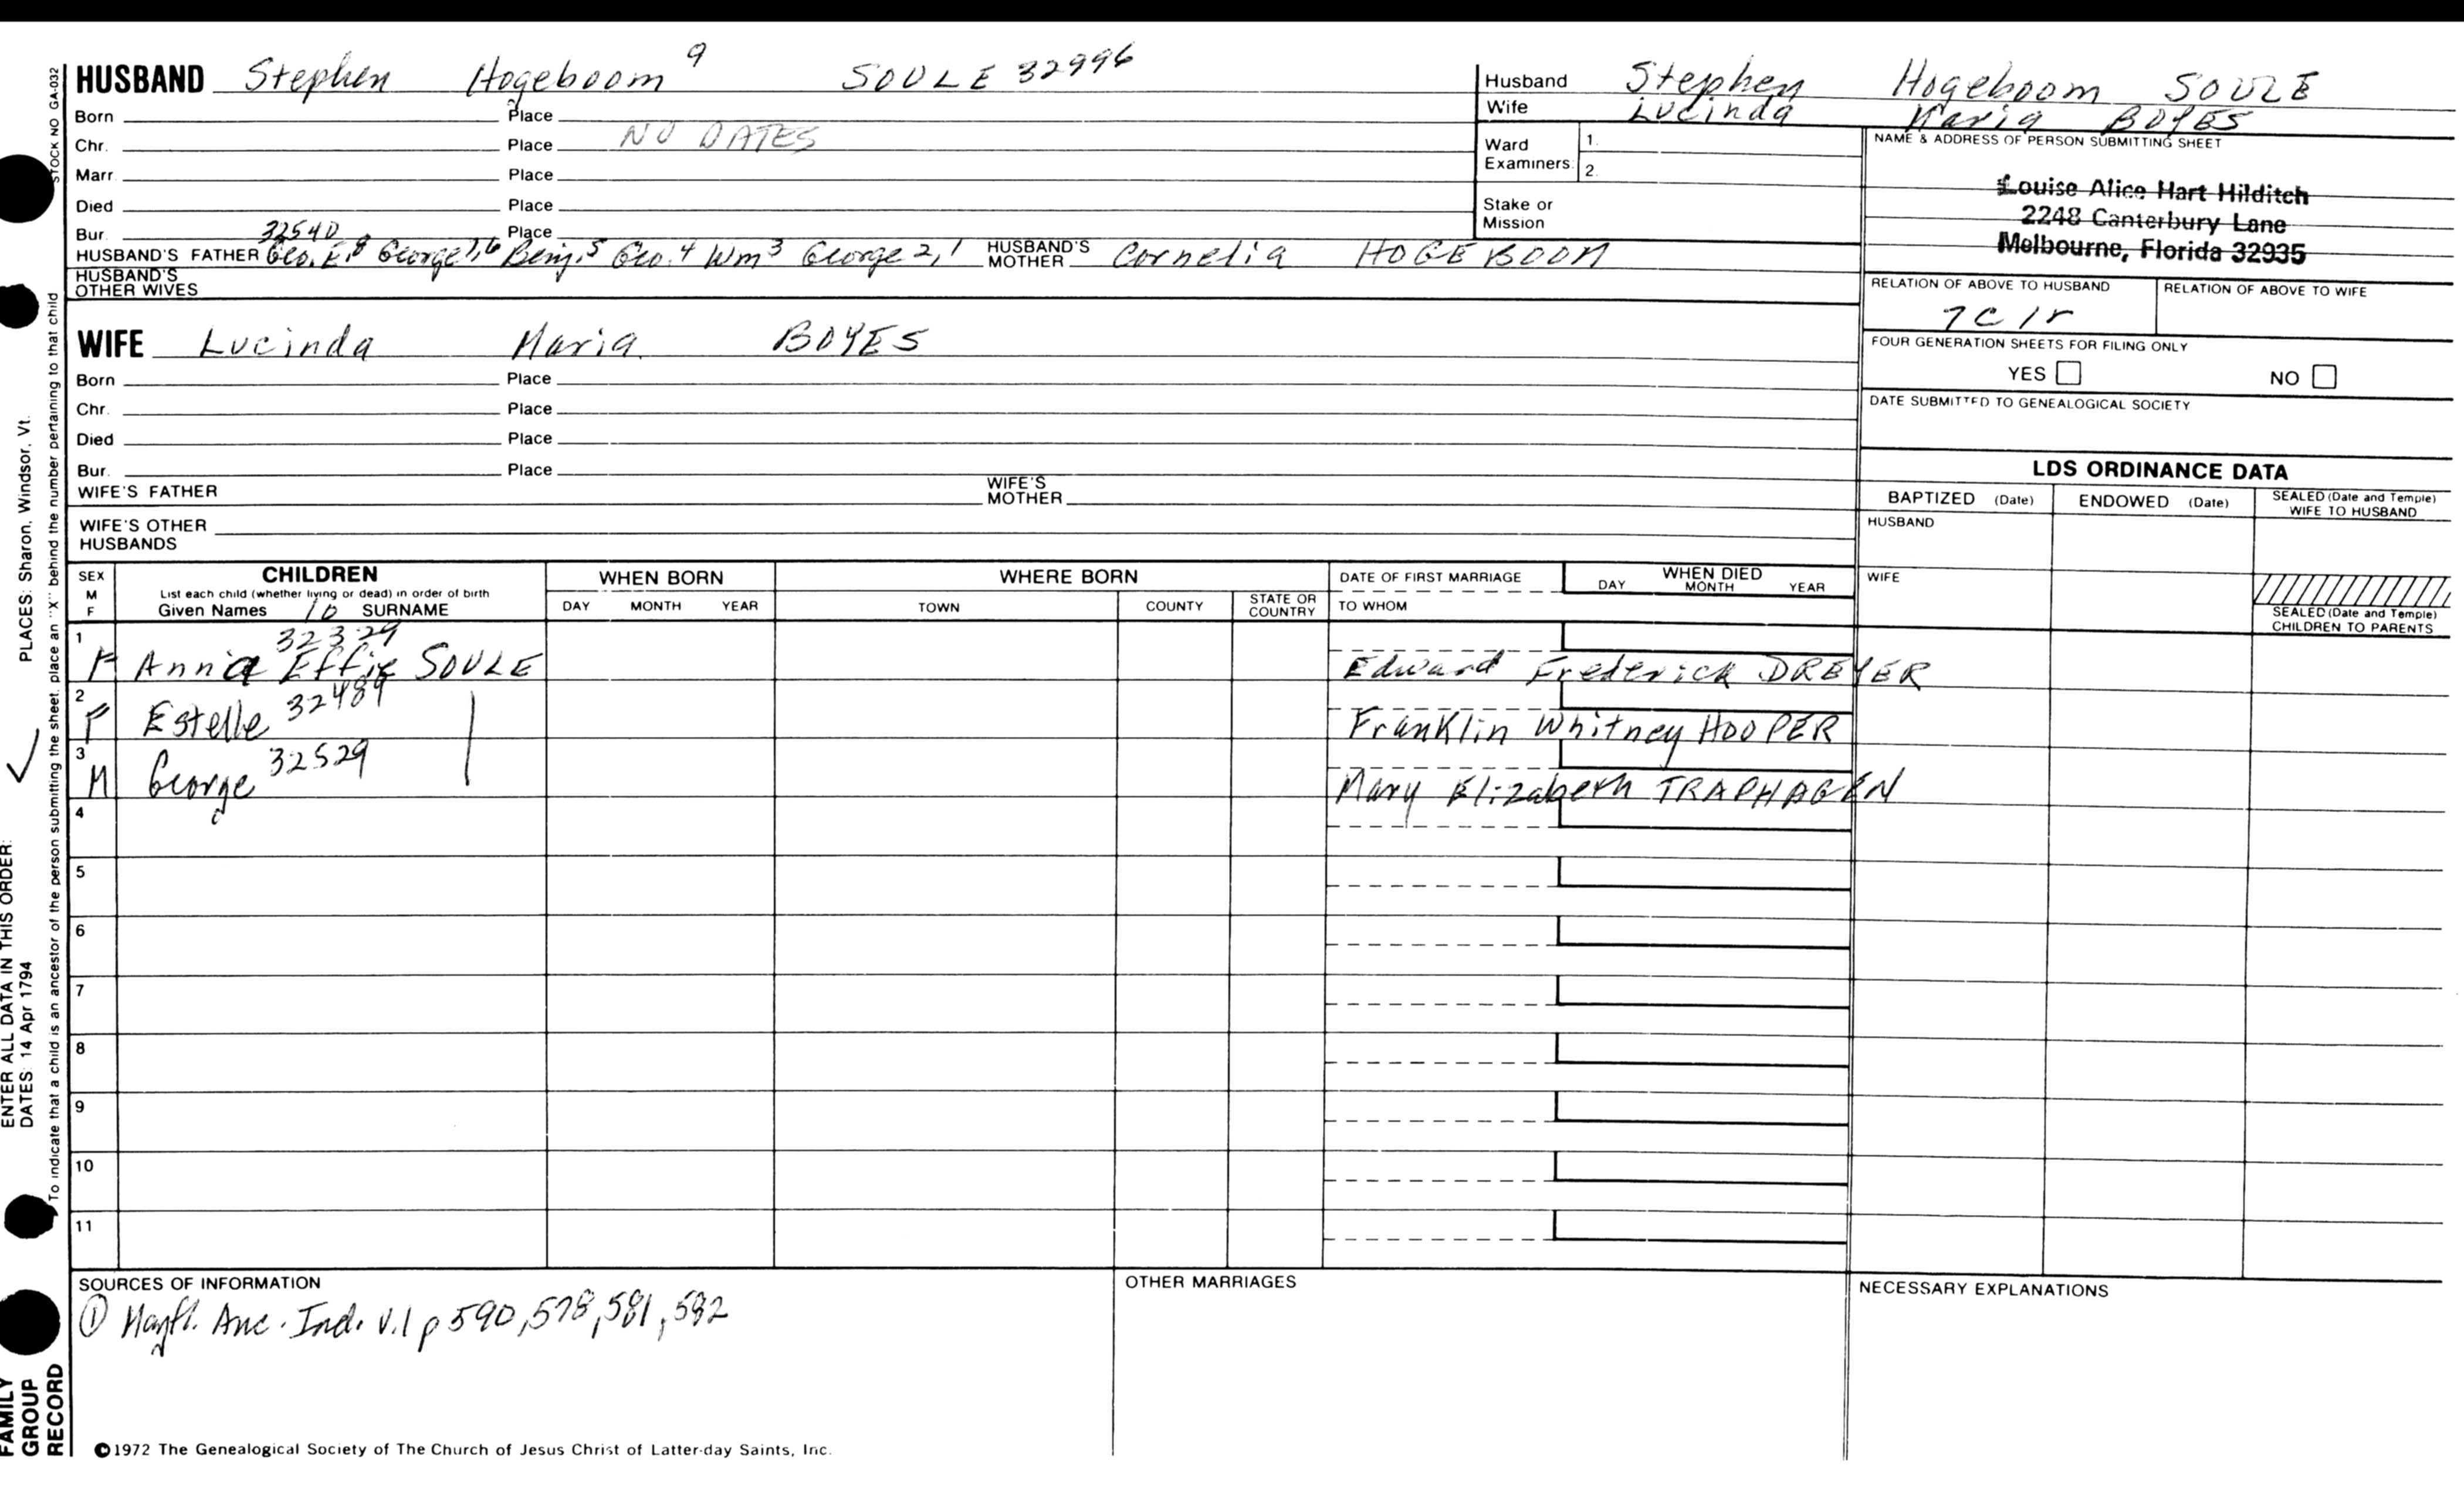 HUSBAND Stephen Hogeboom 9 SOULE 32996
Born Place
Chr. Place NO DATES
Marr. Place
Died Place
Bur. Place
32540
HUSBAND'S FATHER Geo. E.8 George7,6 Benj.5 Geo.4 Wm3 George 2,1 HUSBAND'S MOTHER Cornelia HOGEBOOM
HUSBAND'S OTHER WIVES
WIFE Lucinda Maria BOYES
Born Place
Chr. Place
Died Place
Bur. Place
WIFE'S FATHER WIFE'S MOTHER
WIFE'S OTHER HUSBANDS
Husband Stephen Hogeboom SOULE
Wife Lucinda Maria BOYES
Ward Examiners: 1. 2.
Stake or Mission
NAME & ADDRESS OF PERSON SUBMITTING SHEET
Louise Alice Hart Hilditch
2248 Canterbury Lane
Melbourne, Florida 32935
RELATION OF ABOVE TO HUSBAND RELATION OF ABOVE TO WIFE
7C1r
FOUR GENERATION SHEETS FOR FILING ONLY
YES NO
DATE SUBMITTED TO GENEALOGICAL SOCIETY
LDS ORDINANCE DATA
BAPTIZED (Date) ENDOWED (Date) SEALED (Date and Temple) WIFE TO HUSBAND
HUSBAND
WIFE
SEALED (Date and Temple) CHILDREN TO PARENTS
SEX M F
CHILDREN
List each child (whether living or dead) in order of birth
Given Names 10 SURNAME
WHEN BORN
DAY MONTH YEAR
WHERE BORN
TOWN COUNTY STATE OR COUNTRY
DATE OF FIRST MARRIAGE
TO WHOM
WHEN DIED
DAY MONTH YEAR
1 F Anna Effie 32329 SOULE Edward Frederick DREYER
2 F Estelle 32489 Franklin Whitney HOOPER
3 M George 32529 Mary Elizabeth TRAPHAGEN
4
5
6
7
8
9
10
11
SOURCES OF INFORMATION
① Mayfl. Anc. Ind. V.1 p 590,578,581,582
OTHER MARRIAGES
NECESSARY EXPLANATIONS
©1972 The Genealogical Society of The Church of Jesus Christ of Latter-day Saints, Inc.
STOCK NO GA-032
To indicate that a child is an ancestor of the person submitting the sheet, place an "X" behind the number pertaining to that child
PLACES: Sharon, Windsor, Vt.
ENTER ALL DATA IN THIS ORDER:
DATES: 14 Apr 1794
FAMILY
GROUP
RECORD